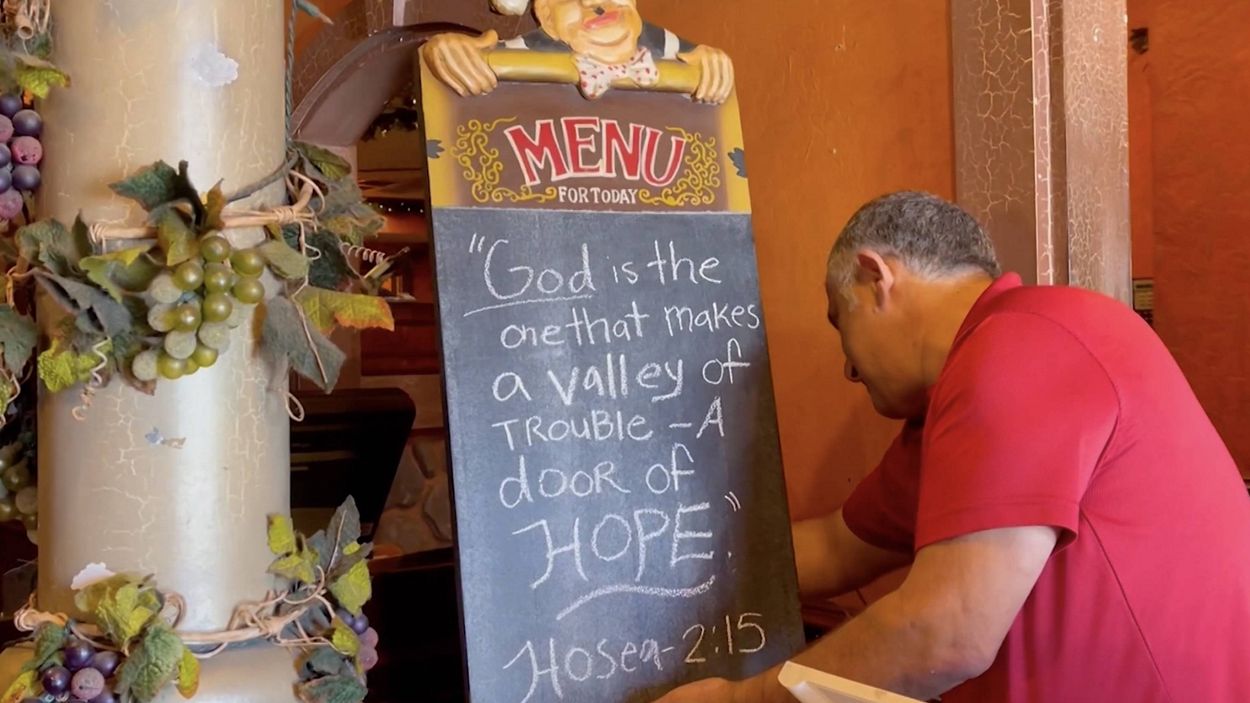 MENU
FOR TODAY
"God is the
one that makes
a valley of
TROUBLE - A
door of
HOPE".
Hosea - 2:15